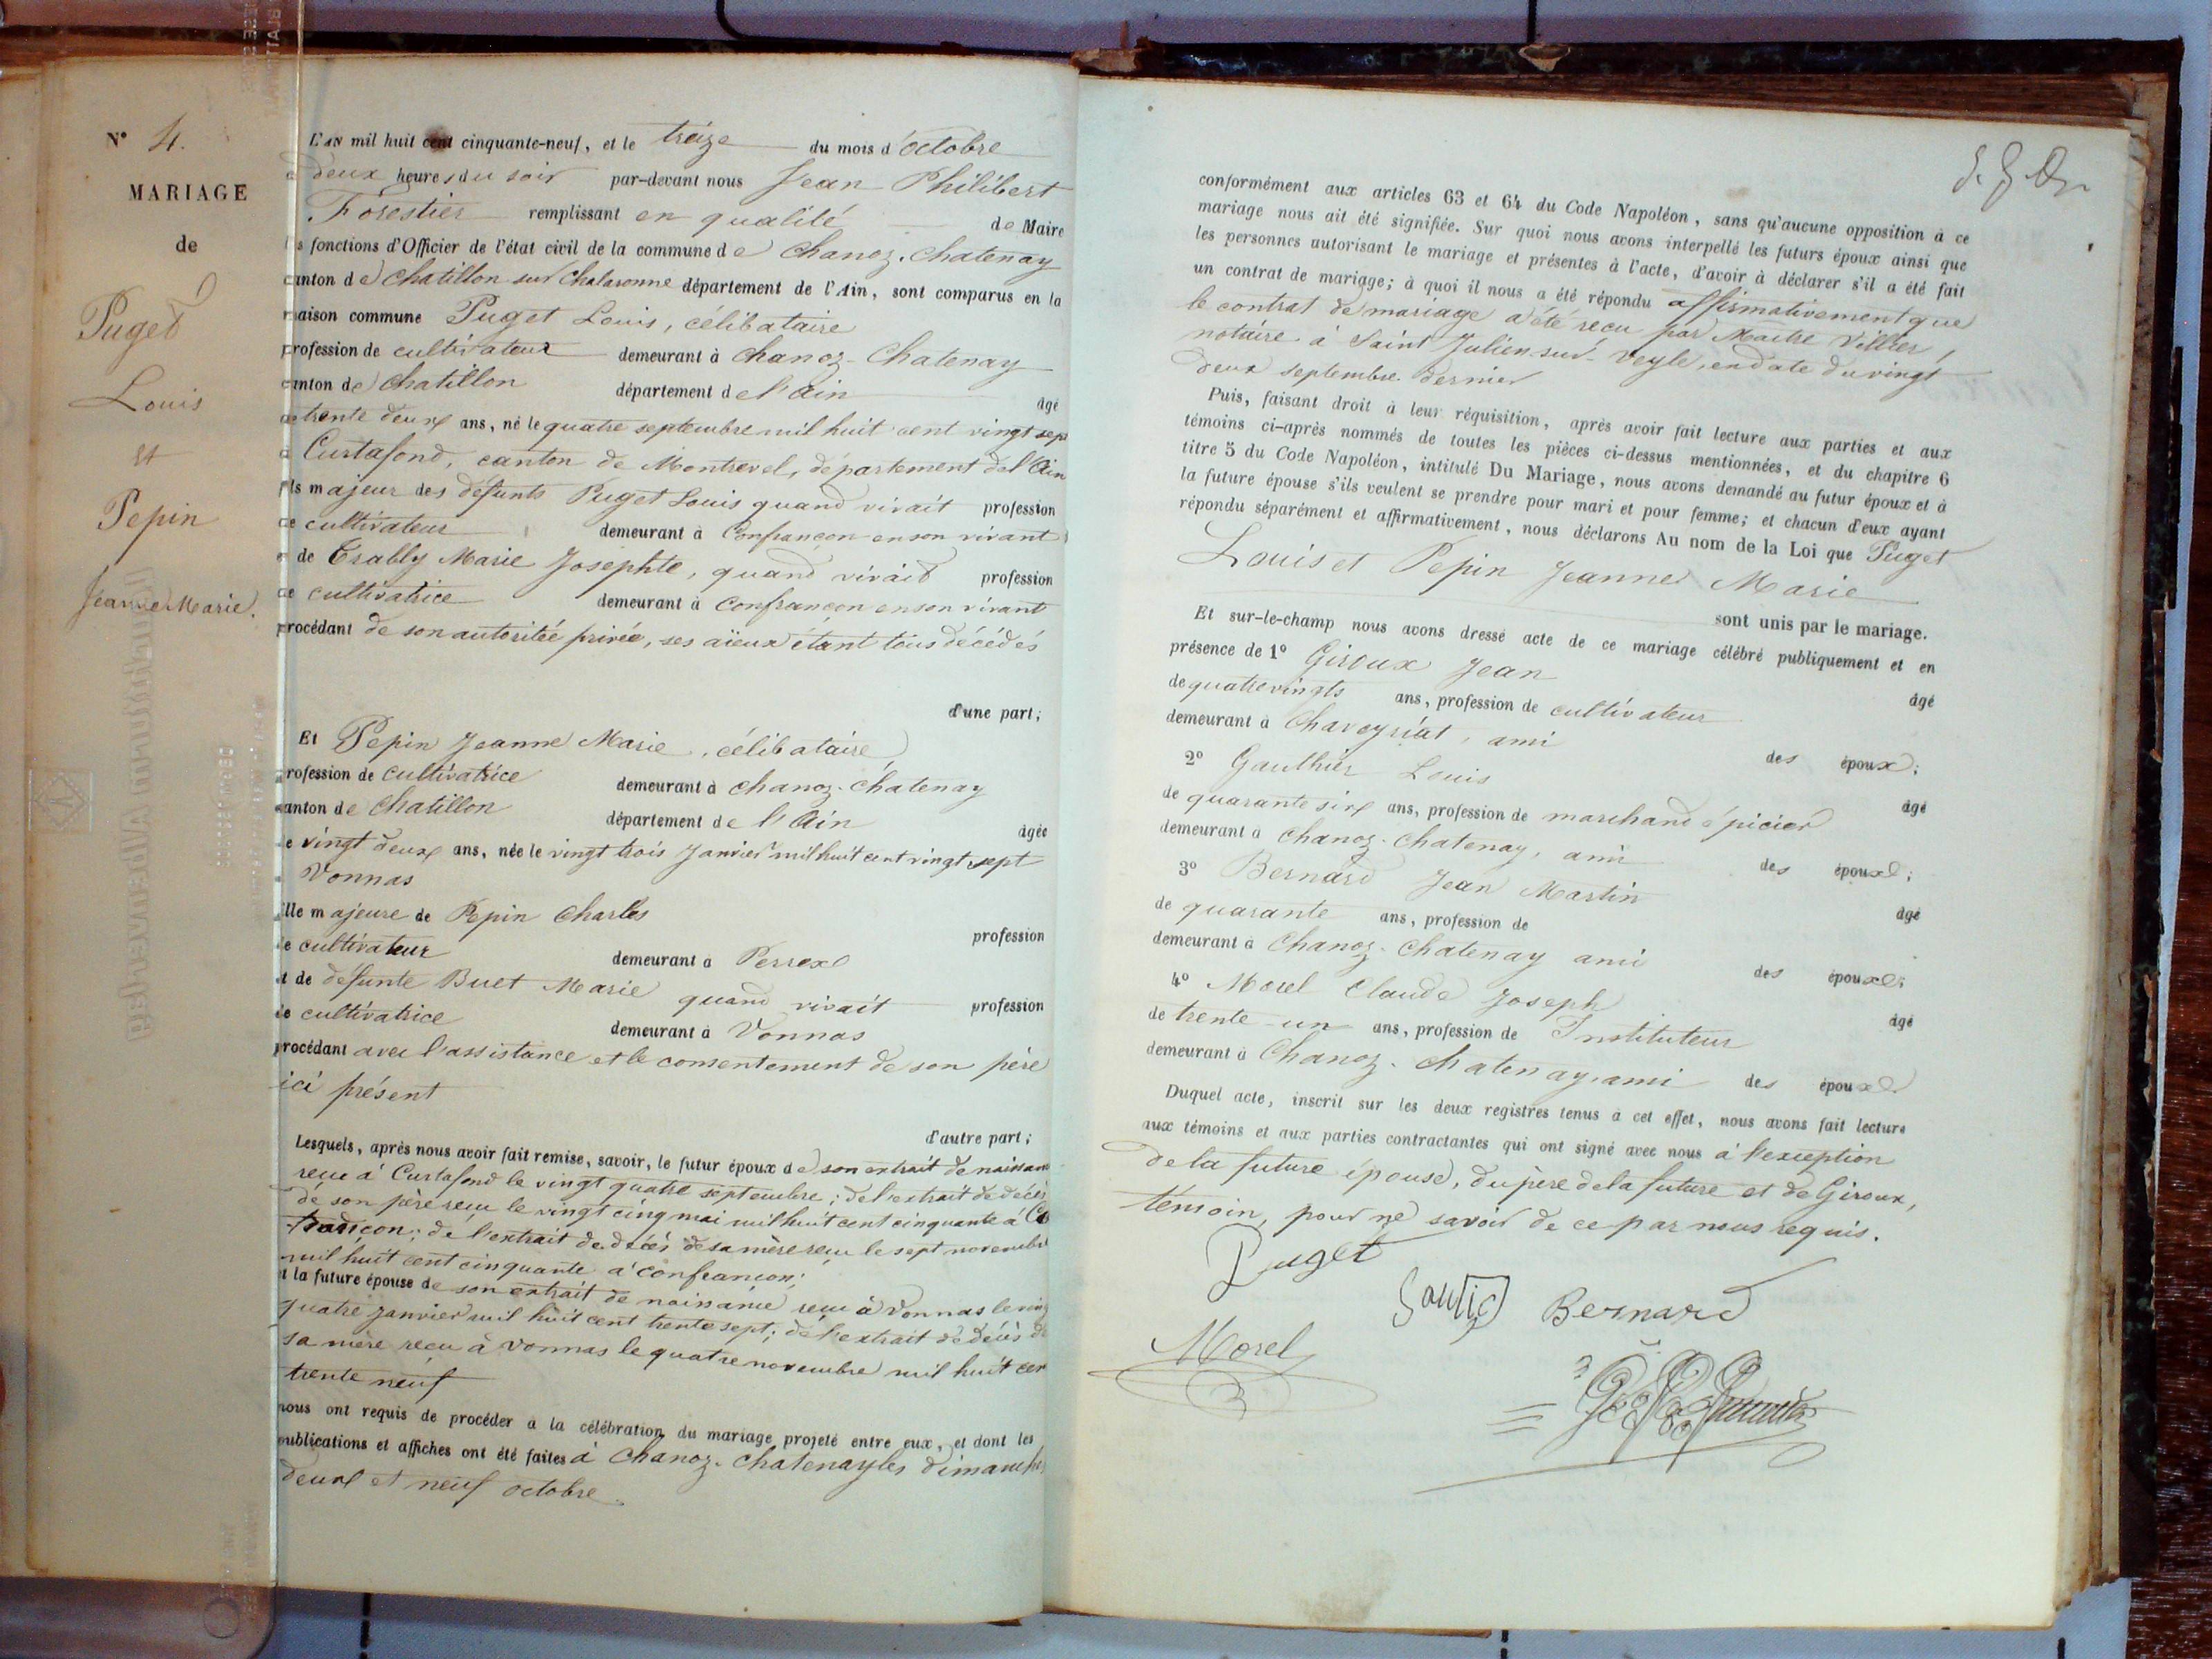 N° 4.
MARIAGE
de
Puget
Louis
et
Pepin
Jeanne Marie.
L'AN mil huit cent cinquante-neuf, et le treize du mois d'octobre
à deux heures du soir par-devant nous Jean Philibert
Forestier remplissant en qualité de Maire
les fonctions d'Officier de l'état civil de la commune de Chanoz-Chatenay
canton de Chatillon sur Chalaronne département de l'Ain, sont comparus en la
maison commune Puget Louis, célibataire
profession de cultivateur demeurant à Chanoz-Chatenay
canton de Chatillon département de l'Ain âgé
de trente deux ans, né le quatre septembre mil huit cent vingt sept
à Curtafond, canton de Montrevel, département de l'Ain
fils majeur des défunts Puget Louis quand vivait profession
de cultivateur demeurant à Confrançon en son vivant
et de Trably Marie Josephte, quand vivait profession
de cultivatrice demeurant à Confrançon en son vivant
procédant de son autoritée privée, ses aïeux étant tous décédés
d'une part;
Et Pepin Jeanne Marie, célibataire
profession de cultivatrice demeurant à Chanoz-Chatenay
canton de Chatillon département de l'Ain âgée
de vingt deux ans, née le vingt trois Janvier mil huit cent vingt sept
à Vonnas
fille majeure de Pepin Charles profession
de cultivateur demeurant à Perrex
et de défunte Buet Marie quand vivait profession
de cultivatrice demeurant à Vonnas
procédant avec l'assistance et le consentement de son père
ici présent
d'autre part;
Lesquels, après nous avoir fait remise, savoir, le futur époux de son extrait de naissance
reçu à Curtafond le vingt quatre septembre; de l'extrait de décès
de son père reçu le vingt cinq mai mil huit cent cinquante à Co
françon; de l'extrait de décès de sa mère reçu le sept novembre
mil huit cent cinquante à Confrançon;
et la future épouse de son extrait de naissance reçu à Vonnas le ving
quatre Janvier mil huit cent trente sept; de l'extrait de décès de
sa mère reçu à Vonnas le quatre novembre mil huit cen
trente neuf
nous ont requis de procéder à la célébration du mariage projeté entre eux, et dont les
publications et affiches ont été faites à Chanoz-Chatenay les dimanches
deux et neuf octobre.
conformément aux articles 63 et 64 du Code Napoléon, sans qu'aucune opposition à ce
mariage nous ait été signifiée. Sur quoi nous avons interpellé les futurs époux ainsi que
les personnes autorisant le mariage et présentes à l'acte, d'avoir à déclarer s'il a été fait
un contrat de mariage; à quoi il nous a été répondu affirmativement que
le contrat de mariage a été reçu par Maitre Villier,
notaire à Saint Julien sur Veyle, en date du vingt
deux septembre dernier
Puis, faisant droit à leur réquisition, après avoir fait lecture aux parties et aux
témoins ci-après nommés de toutes les pièces ci-dessus mentionnées, et du chapitre 6
titre 5 du Code Napoléon, intitulé Du Mariage, nous avons demandé au futur époux et à
la future épouse s'ils veulent se prendre pour mari et pour femme; et chacun d'eux ayant
répondu séparément et affirmativement, nous déclarons Au nom de la Loi que Puget
Louis et Pepin Jeanne Marie
sont unis par le mariage.
Et sur-le-champ nous avons dressé acte de ce mariage célébré publiquement et en
présence de 1° Giroux Jean âgé
de quatrevingts ans, profession de cultivateur
demeurant à Chaveyriat, ami des époux;
2° Gauthier Louis âgé
de quarante six ans, profession de marchand épicier
demeurant à Chanoz-Chatenay, ami des époux;
3° Bernard Jean Martin âgé
de quarante ans, profession de
demeurant à Chanoz-Chatenay ami des époux;
4° Morel Claude Joseph âgé
de trente-un ans, profession de Instituteur
demeurant à Chanoz-Chatenay, ami des époux.
Duquel acte, inscrit sur les deux registres tenus à cet effet, nous avons fait lecture
aux témoins et aux parties contractantes qui ont signé avec nous à l'exception
de la future épouse, du père de la future et de Giroux,
témoin, pour ne savoir de ce par nous requis.
Puget
Bernard
Morel